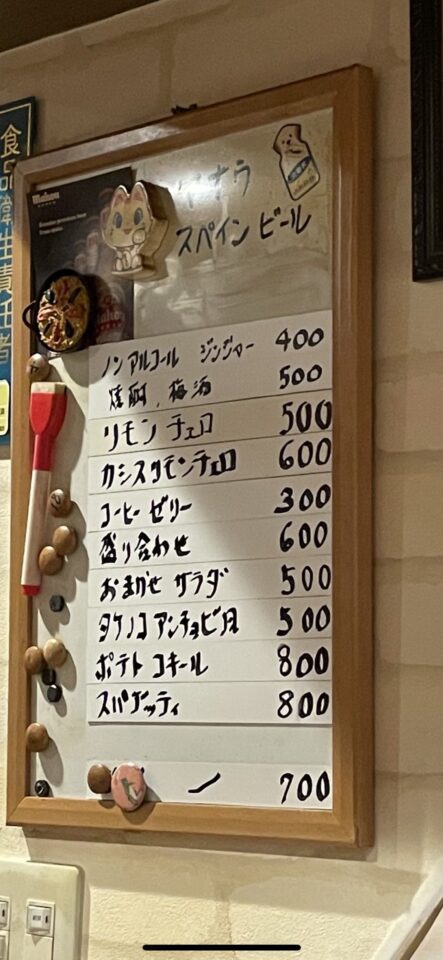 食品衛生責任者
Mahou
マオウ
スペイン ビール
ノンアルコール ジンジャー 400
焼酎、梅酒 500
リモンチェロ 500
カシスリモンチェロ 600
コーヒーゼリー 300
盛り合わせ 600
おまかせ サラダ 500
タケノコ アンチョビ 500
ポテト コキール 800
スパゲッティ 800
ー 700